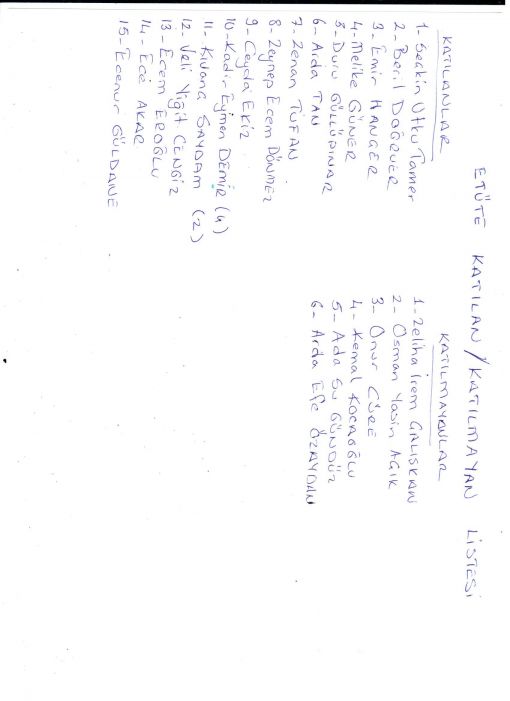 ETÜTE KATILAN / KATILMAYAN LİSTESİ
KATILANLAR
1- Seçkin Utku Tamer
2- Beril DOĞRUER
3- Emir HANGER
4- Melike GÜNER
5- Duru GÜLLÜPINAR
6- Arda TAN
7- Zenan TUFAN
8- Zeynep Ecem DÖNMEZ
9- Ceyda EKİZ
10- Kadir Eymen DEMİR (4)
11- Kıvanç SAYDAM (2)
12- Veli Yiğit CENGİZ
13- Ecem EROĞLU
14- Ece AKAR
15- Ecenur GÜLDANE
KATILMAYANLAR
1- Zeliha İrem ÇALIŞKAN
2- Osman Yasin AÇIK
3- Onur CÜRE
4- Kemal KOCAOĞLU
5- Ada Su GÜNDÜZ
6- Arda Efe ÖZAYDAN